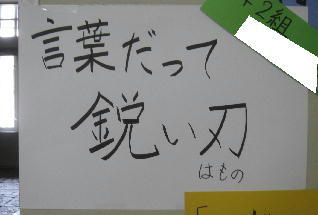 2組
言葉だって
鋭い刃
はもの